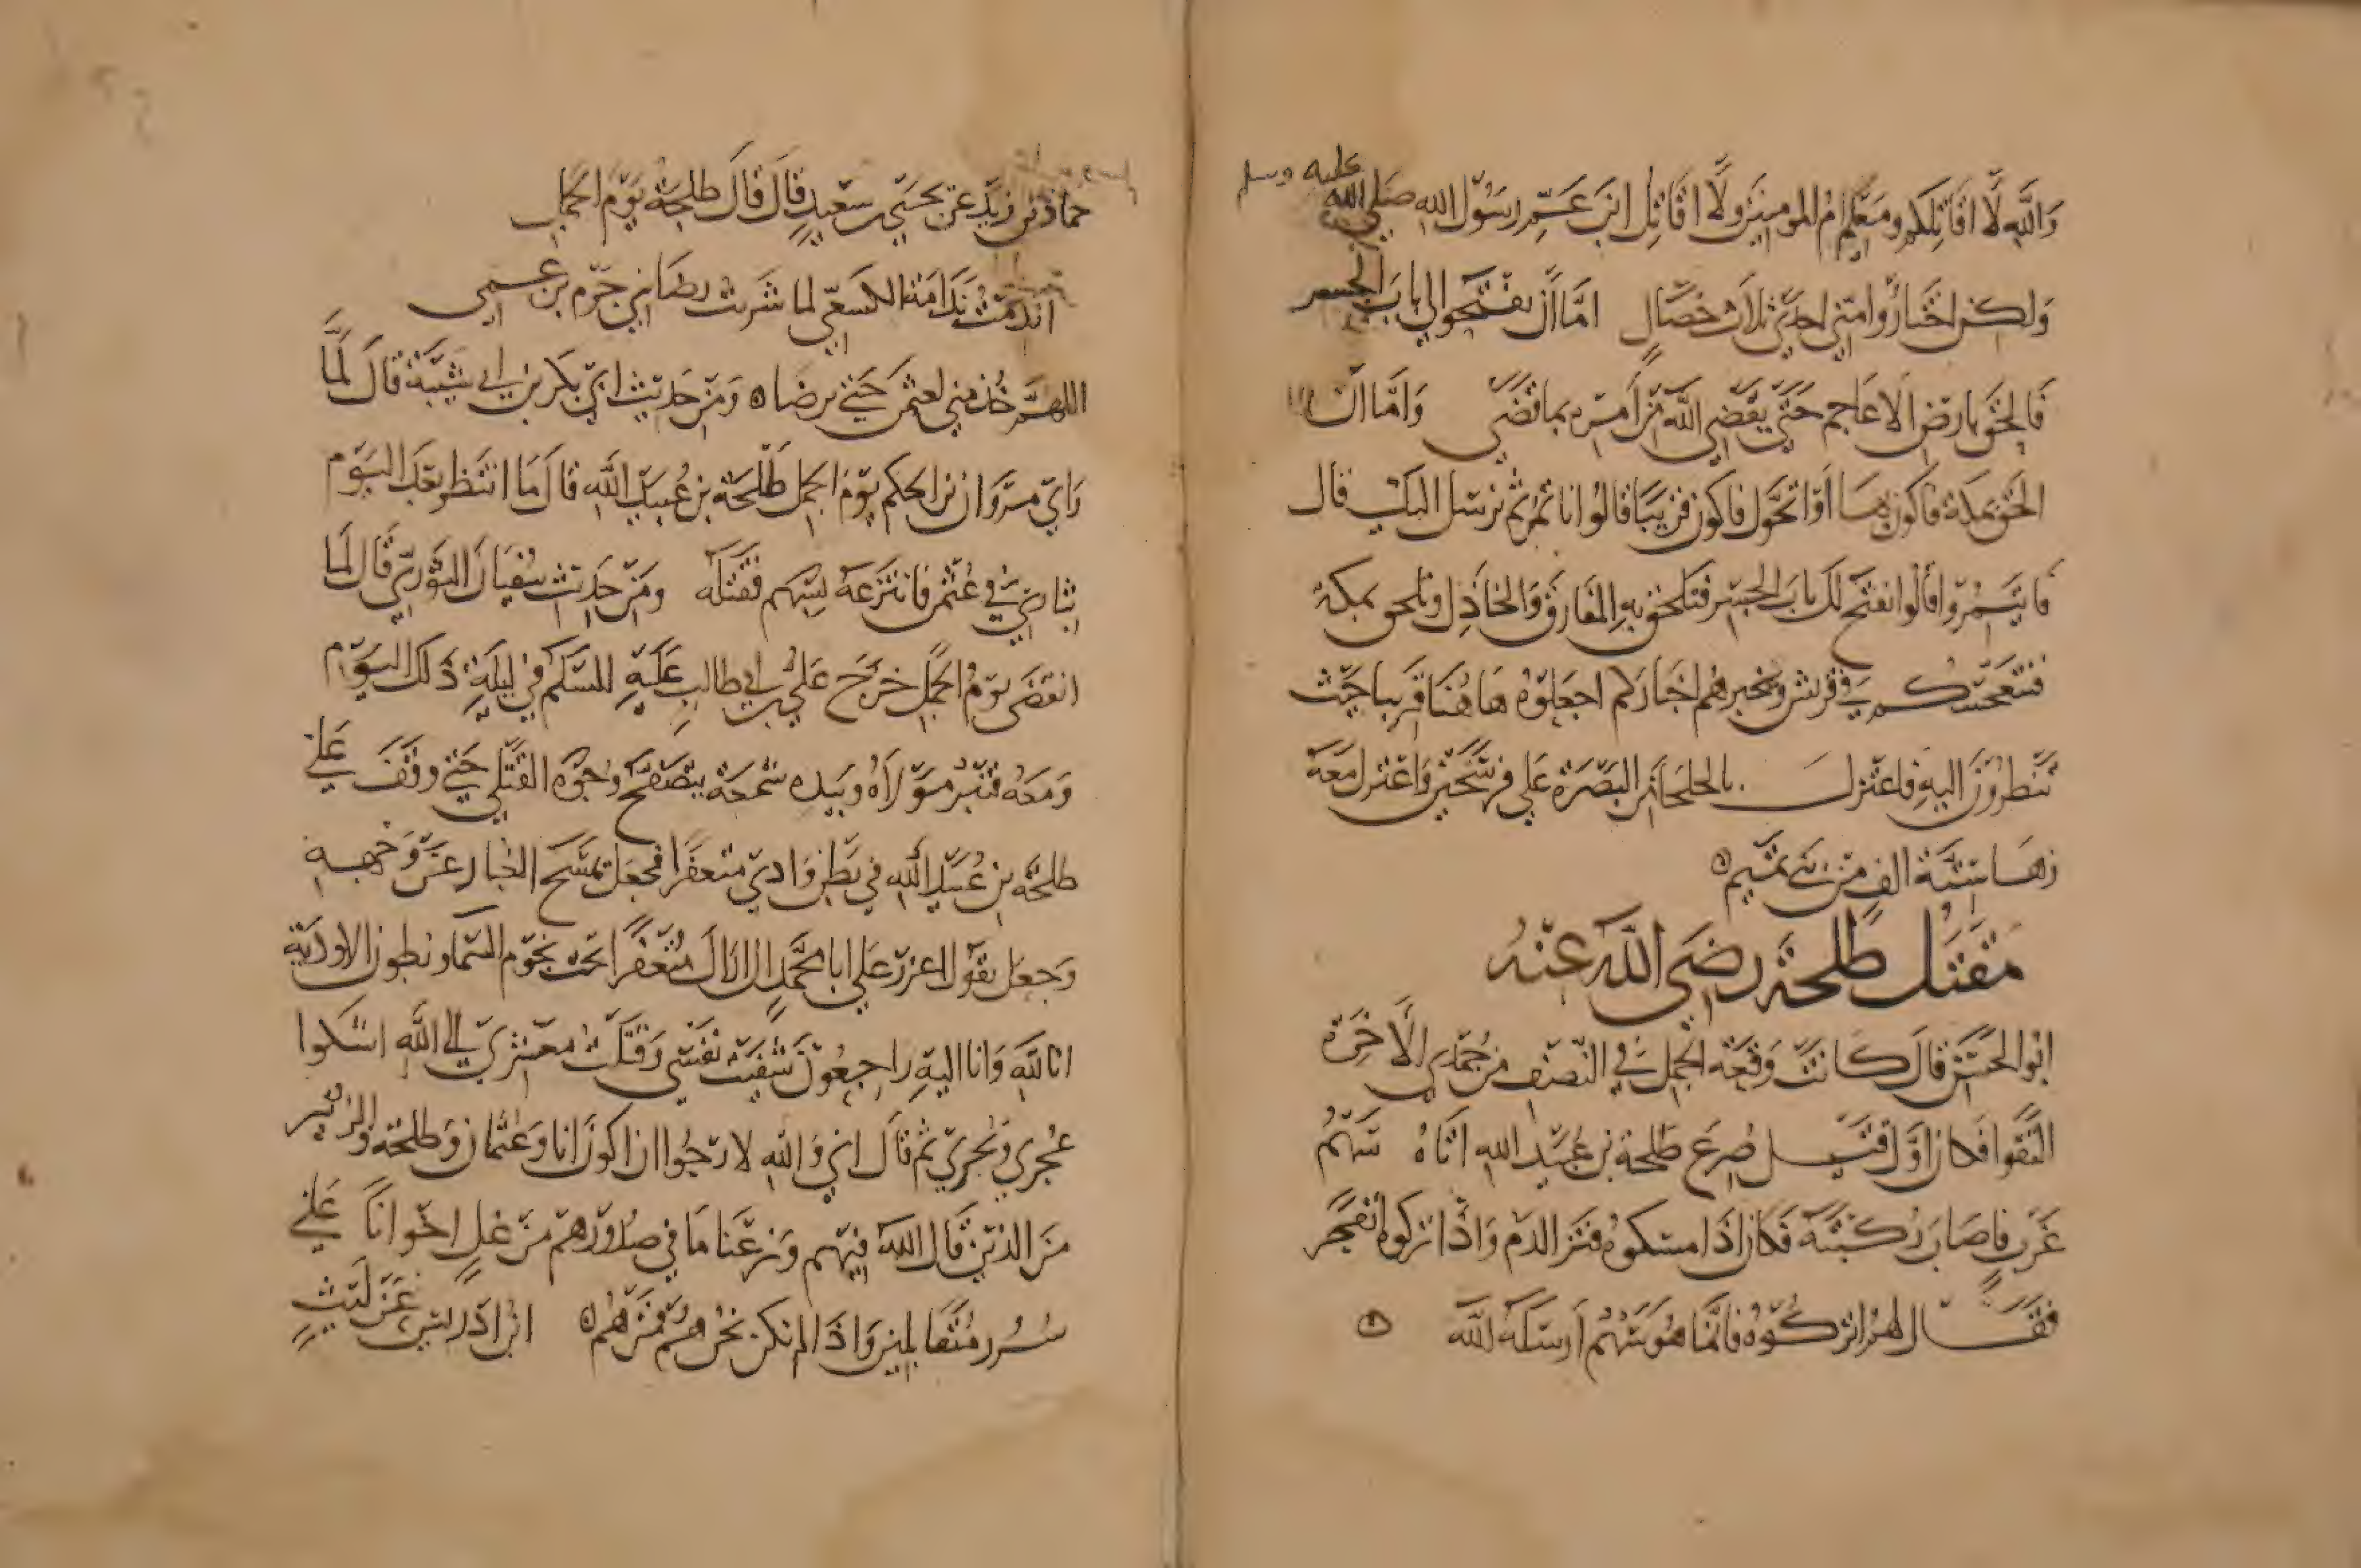 والله لا اقاتلكم ومعكم ام المومنين ولا اقاتل ابن عم رسول الله صلى الله عليه وسلم
ولكن اختاروا مني احدى ثلاث خصال اما ان تفتحوا لي باب الجسر
فالحق بارض الاعاجم حتى يقضي الله من امره بما قضى واما ان
الحق بمكة فاكون بها او اتحول فاكون قريبا قالوا ناتمر ثم نرسل اليك قال
فايتمروا قالوا نفتح لك باب الجسر فتلحق به المفارق والخاذل وتلحق بمكة
في قريش ويخبرهم اخباركم اجعلوه هاهنا قريبا حيث
تنظرون اليه فاعتزل بالجلحا من البصرة على فرسخين واعتزل معه
زها ستة الف من بني تميم
مقتل طلحة رضي الله عنه
ابو الحسن قال كانت وقعة الجمل في النصف من جمادى الاخرة
التقوا فكان اول قتيل صرع طلحة بن عبيد الله اتاه سهم
غرب فاصاب ركبته فكان اذا امسكوه فتر الدم واذا تركوه انفجر
فقال لهم اتركوه فانما هو سهم ارسله الله
حماد بن زيد عن يحيى بن سعيد قال قال طلحة يوم الجمل
ندمت ندامة الكسعي لما شريت رضا بني جرم بن عمي
اللهم خذ مني لعثمن حتى ترضاه ومن حديث ابي بكر بن ابي شيبة قال لما
راي مروان بن الحكم يوم الجمل طلحة بن عبيد الله قال ما انتظر بعد اليوم
بثاري في عثمن فانتزعه بسهم فقتله ومن حديث سفيان الثوري قال لما
انقضى يوم الجمل خرج علي بن ابي طالب عليه السلم في ليلة ذلك اليوم
ومعه قنبر مولاه وبيده شمعة يتصفح وجوه القتلى حتى وقف على
طلحة بن عبيد الله في بطن وادي متعفرا فجعل يمسح الغبار عن وجهه
وجعل يقول اعزز علي ابا محمد ان اراك متعفرا تحت نجوم السما وبطون الاودية
انا لله وانا اليه راجعون شفيت نفسي وقتلت معشري الى الله اشكوا
عجري وبجري ثم قال اني والله لارجوا ان اكون انا وعثمان وطلحة والزبير
من الذين قال الله فيهم ونزعنا ما في صدورهم من غل اخوانا على
سرر متقابلين واذا لم نكن نحن هم فمن هم ابن ادريس عن ليث